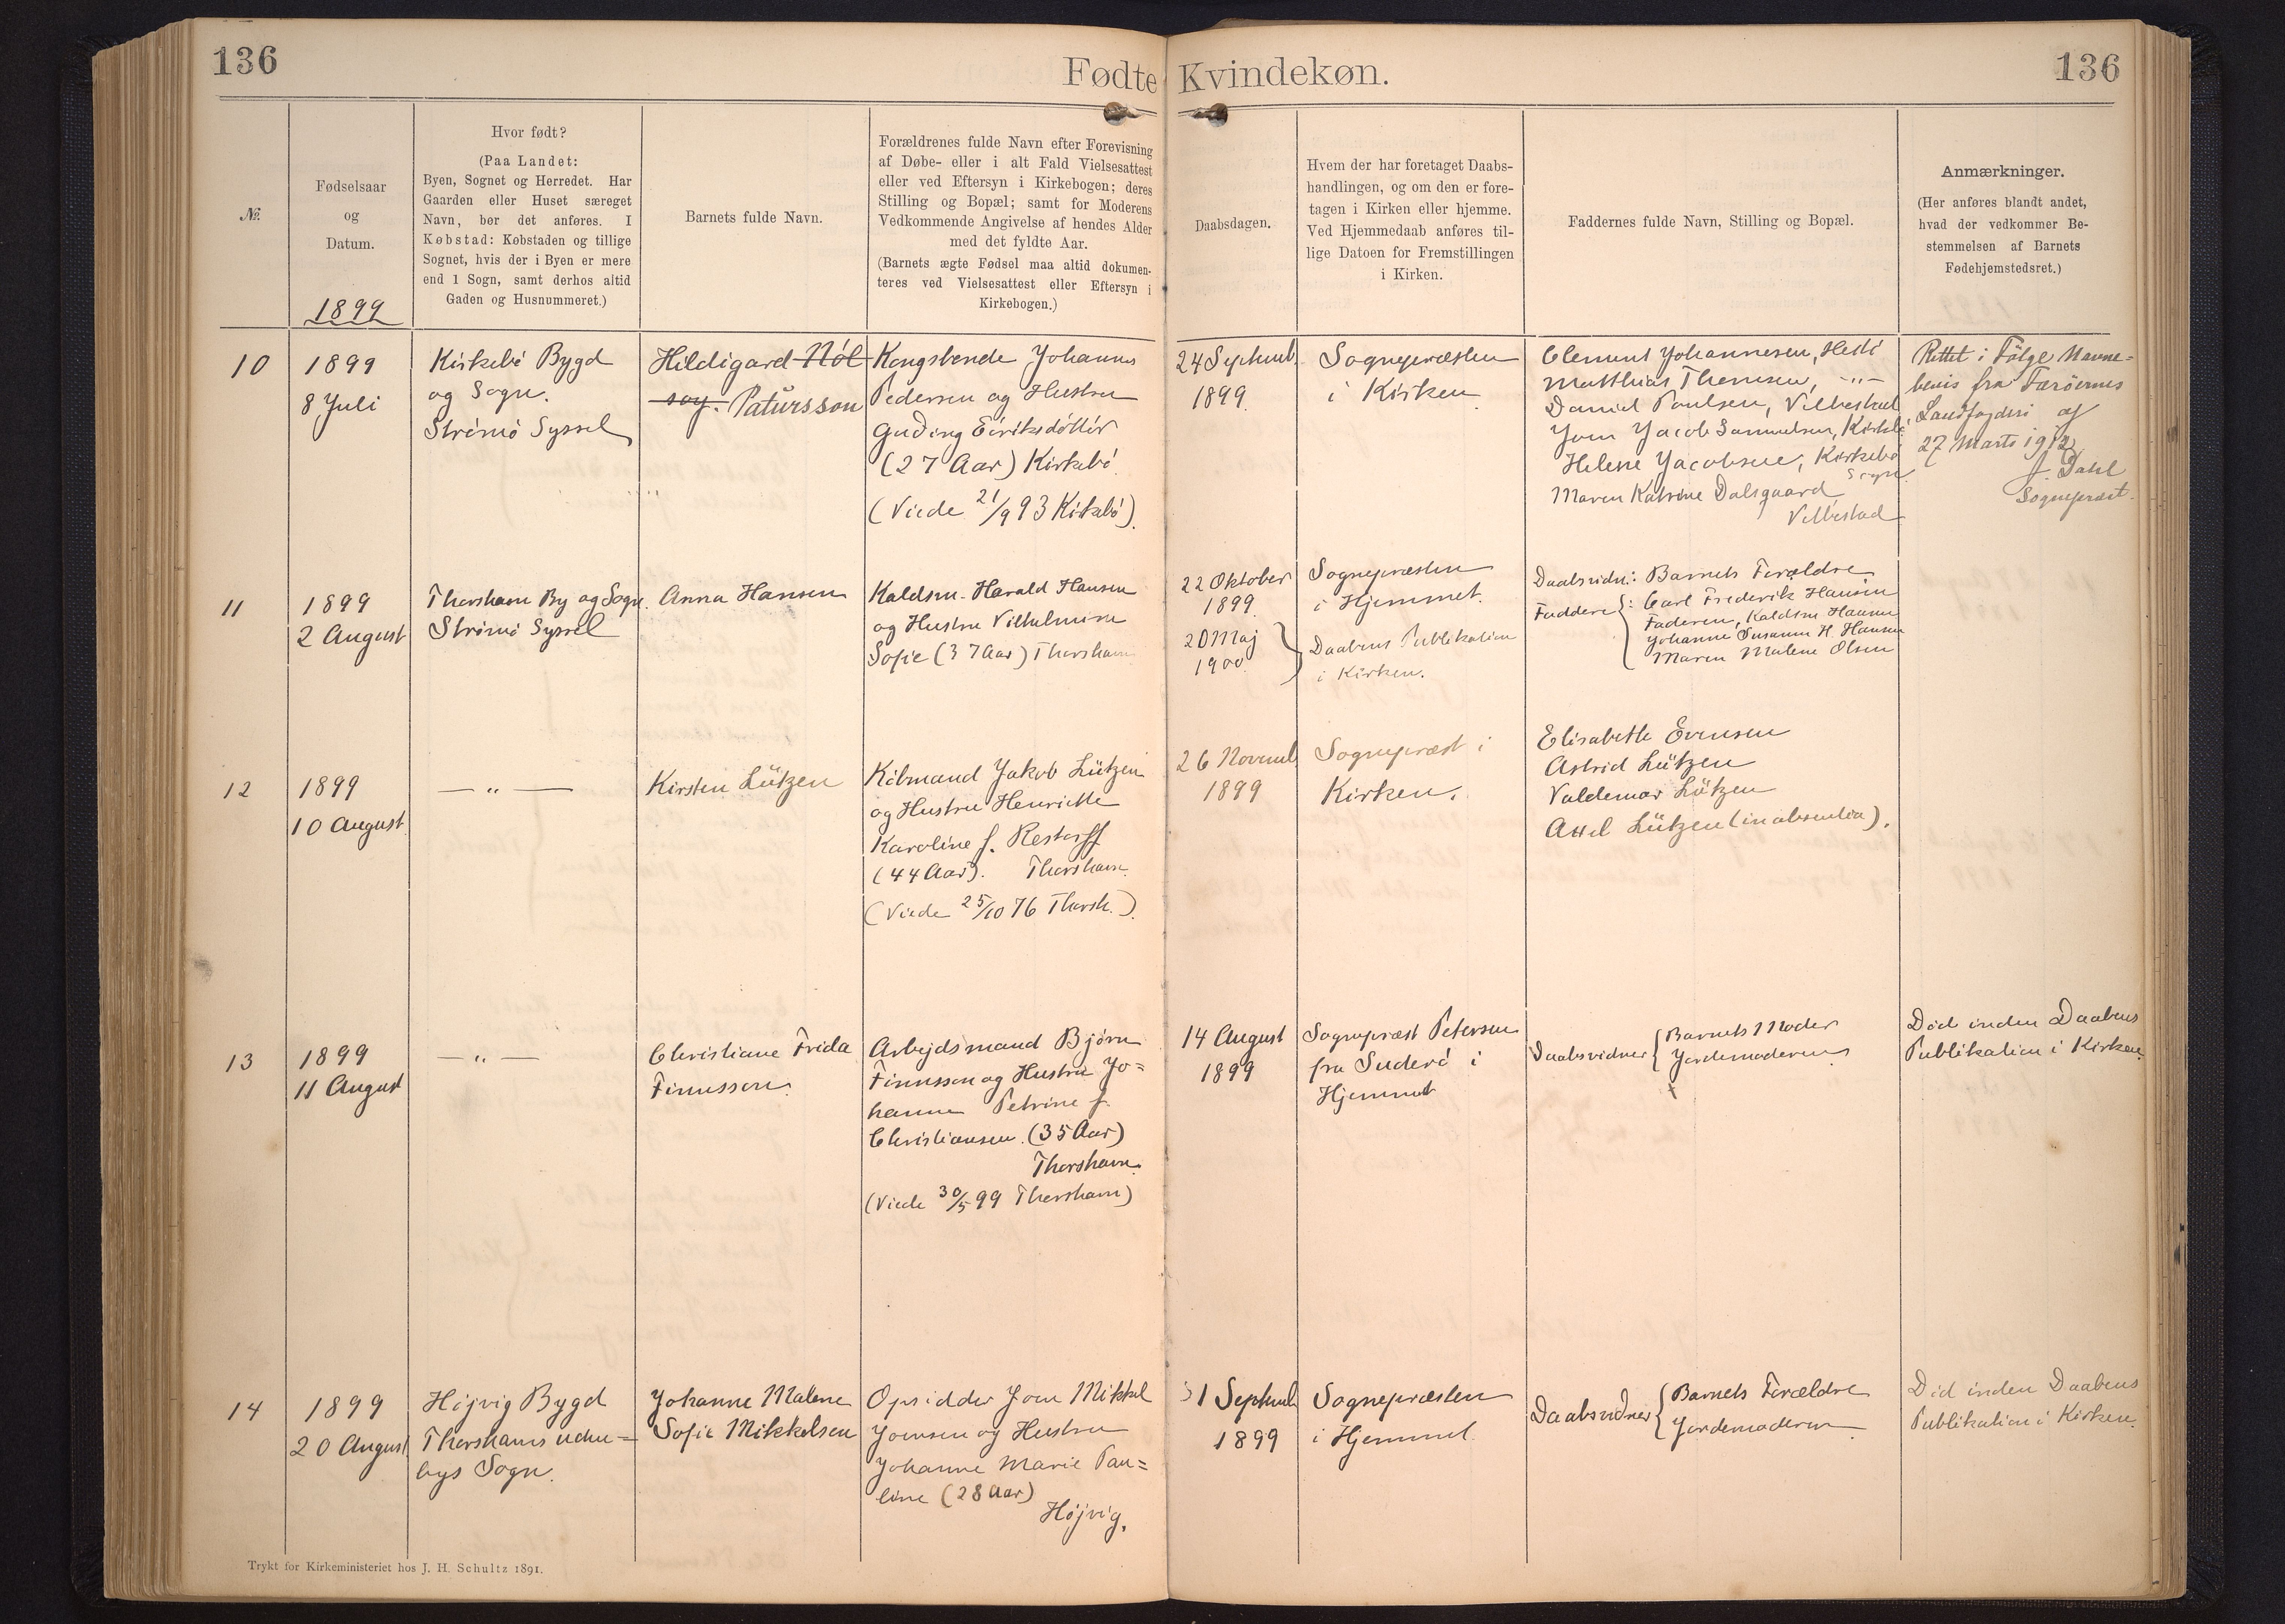 136
Fødte Kvindekøn.
136
№.
Fødselsaar
og
Datum.
1899
Hvor født?
(Paa Landet:
Byen, Sognet og Herredet. Har
Gaarden eller Huset særeget
Navn, bør det anføres. I
Købstad: Købstaden og tillige
Sognet, hvis der i Byen er mere
end 1 Sogn, samt derhos altid
Gaden og Husnummeret.)
Barnets fulde Navn.
Forældrenes fulde Navn efter Forevisning
af Døbe- eller i alt Fald Vielsesattest
eller ved Eftersyn i Kirkebogen; deres
Stilling og Bopæl; samt for Moderens
Vedkommende Angivelse af hendes Alder
med det fyldte Aar.
(Barnets ægte Fødsel maa altid dokumen-
teres ved Vielsesattest eller Eftersyn i
Kirkebogen.)
Daabsdagen.
Hvem der har foretaget Daabs-
handlingen, og om den er fore-
tagen i Kirken eller hjemme.
Ved Hjemmedaab anføres til-
lige Datoen for Fremstillingen
i Kirken.
Faddernes fulde Navn, Stilling og Bopæl.
Anmærkninger.
(Her anføres blandt andet,
hvad der vedkommer Be-
stemmelsen af Barnets
Fødehjemstedsret.)
10
1899
8 Juli
Kirkebö Bygd
og Sogn.
Strömö Syssel
Hildigard Nól
soy. Patursson
Kongsbonde Johannes
Pedersen og Hustru
Guðiny Eiriksdóttir
(27 Aar) Kirkebö
(Viede 21/9 93 Kirkebö)
24 Septemb.
1899
Sognepræsten
i Kirken
Clement Johannesen, Hestö
Matthias Thomsen, —"—
Daniel Poulsen, Velbestad
Joen Jacob Samuelsen, Kirkebö
Helene Jacobsen, Kirkebö
Sogn.
Maren Katrine Dalsgaard
Velbestad
Rettet i Følge Navne=
bevis fra Færöernes
Landfogderi af
27 Marts 1912
J. Dahl
Sognepræst.
11
1899
2 August
Thorshavn By og Sogn.
Strömö Syssel
Anna Hansen
Kaldsm. Harald Hansen
og Hustru Vilhelmine
Sofie (37 Aar) Thorshavn
22 Oktober
1899
20 Maj
1900
Sognepræsten
i Hjemmet.
Daabens Publikation
i Kirken.
Daabsvidn: Barnets Forældre
Faddere: Carl Frederik Hansen
Faderen, Kaldsm Hansen
Johanne Susanne H. Hansen
Maren Malene Olsen
12
1899
10 August
— " —
Kirsten Lützen
Köbmand Jakob Lützen
og Hustru Henriette
Karoline f. Restorff
(44 Aar). Thorshavn
(Viede 25/10 76 Thorsh.)
26 Novemb
1899
Sognepræst i
Kirken.
Elisabeth Evensen
Astrid Lützen
Valdemar Lützen
Axel Lützen (in absentia).
13
1899
11 August
— " —
Christiane Frida
Finnsson.
Arbejdsmand Bjørn
Finnsson og Hustru Jo=
hanne Petrine f.
Christiansen (35 Aar)
Thorshavn.
(Viede 30/5 99 Thorshavn)
14 August
1899
Sognepræst Petersen
fra Suderö i
Hjemmet
Daabsvidner
Barnets Moder
Jordemoderen
Död inden Daabens
Publikation i Kirken
14
1899
20 August
Höjvig Bygd
Thorshavns uden=
bys Sogn.
Johanne Malene
Sofie Mikkelsen
Opsidder Joen Mikkel
Joensen og Hustru
Johanne Marie Pau=
line (28 Aar)
Höjvig.
1 Septemb
1899
Sognepræsten
i Hjemmet
Daabsvidner
Barnets Forældre
Jordemoderen
Död inden Daabens
Publikation i Kirken.
Trykt for Kirkeministeriet hos J. H. Schultz 1891.